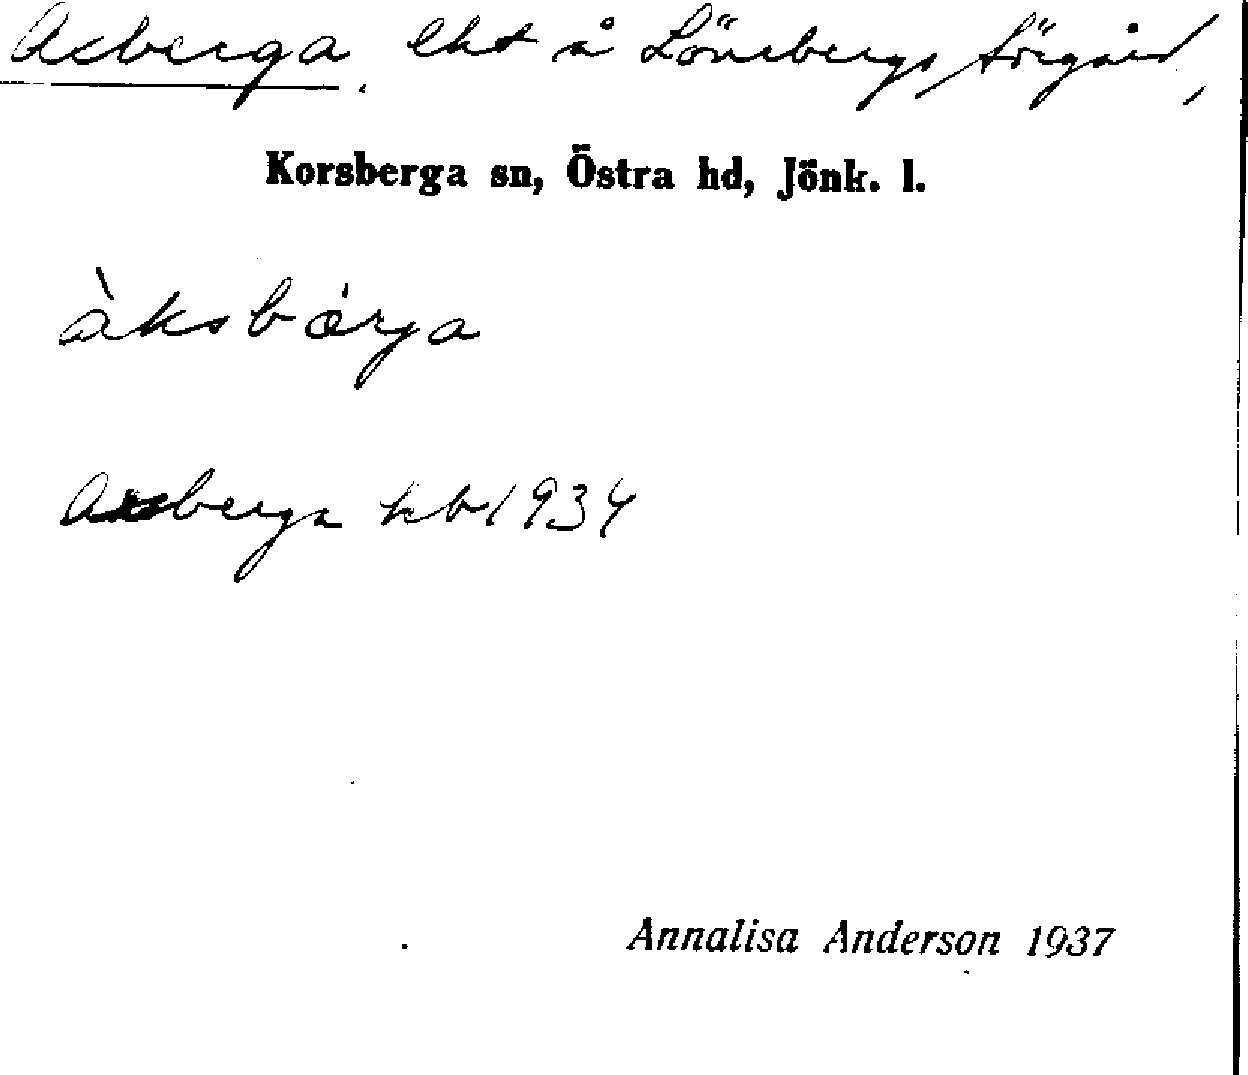 Axberga. lht å Lönebergs Sörgård,
Korsberga sn, Östra hd, Jönk. l.
àksbǽrja
Axberga kb 1934
Annalisa Anderson 1937